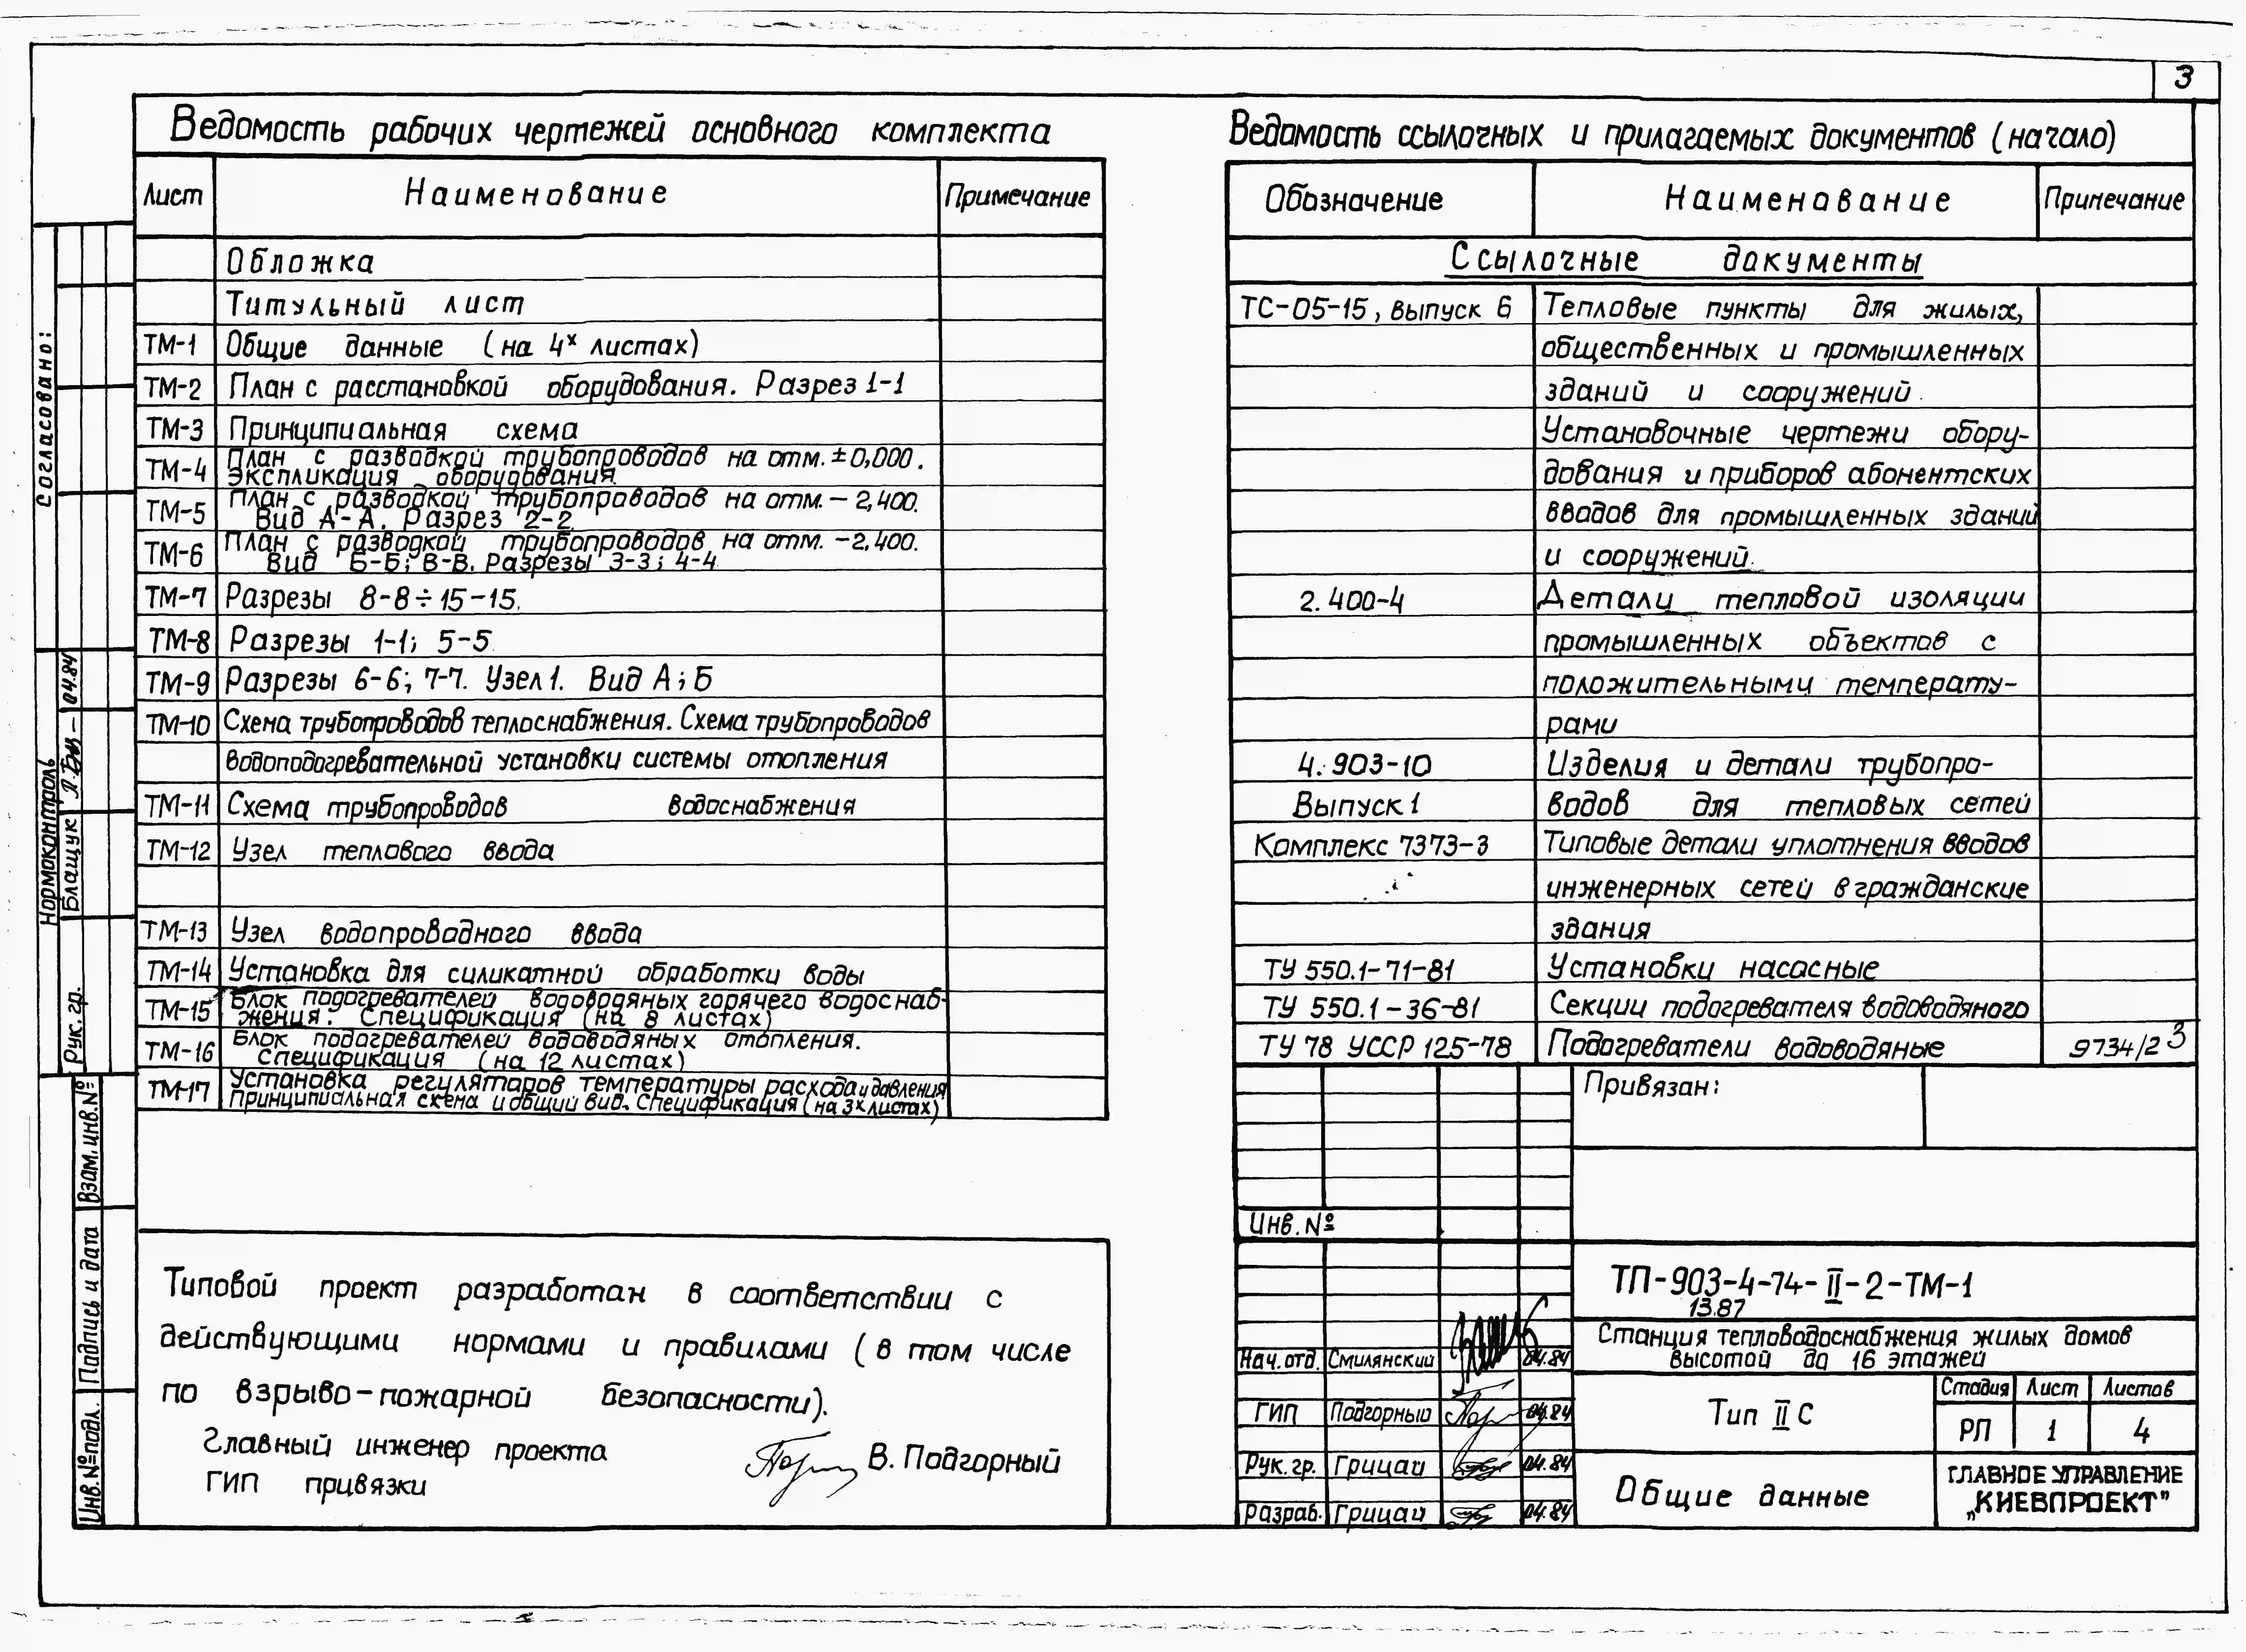 3
Ведомость рабочих чертежей основного комплекта
Лист Наименование Примечание
Обложка
Титульный лист
ТМ-1 Общие данные (на 4х листах)
ТМ-2 План с расстановкой оборудования. Разрез 1-1
ТМ-3 Принципиальная схема
ТМ-4 План с разводкой трубопроводов на отм. ±0,000.
Экспликация оборудования.
ТМ-5 План с разводкой трубопроводов на отм. – 2,400.
Вид А-А. Разрез 2-2.
ТМ-6 План с разводкой трубопроводов на отм. -2,400.
Вид Б-Б; В-В. Разрезы 3-3; 4-4
ТМ-7 Разрезы 8-8÷15-15.
ТМ-8 Разрезы 1-1; 5-5
ТМ-9 Разрезы 6-6; 7-7. Узел 1. Вид А; Б
ТМ-10 Схема трубопроводов теплоснабжения. Схема трубопроводов
водоподогревательной установки системы отопления
ТМ-11 Схема трубопроводов водоснабжения
ТМ-12 Узел теплового ввода
ТМ-13 Узел водопроводного ввода
ТМ-14 Установка для силикатной обработки воды
ТМ-15 Блок подогревателей водоводяных горячего водоснаб-
жения. Спецификация (на 8 листах)
ТМ-16 Блок подогревателей водоводяных отопления.
Спецификация (на 12 листах)
ТМ-17 Установка регуляторов температуры расхода и давления
Принципиальная схема и общий вид. Спецификация (на 3х листах)
Типовой проект разработан в соответствии с
действующими нормами и правилами (в том числе
по взрыво-пожарной безопасности).
Главный инженер проекта В. Подгорный
ГИП привязки
Ведомость ссылочных и прилагаемых документов (начало)
Обозначение Наименование Примечание
Ссылочные документы
ТС-05-15, выпуск 6 Тепловые пункты для жилых,
общественных и промышленных
зданий и сооружений.
Установочные чертежи обору-
дования и приборов абонентских
вводов для промышленных зданий
и сооружений.
2.400-4 Детали тепловой изоляции
промышленных объектов с
положительными температу-
рами
4.903-10 Изделия и детали трубопро-
Выпуск 1 водов для тепловых сетей
Комплекс 7373-3 Типовые детали уплотнения вводов
инженерных сетей в гражданские
здания
ТУ 550.1-71-81 Установки насосные
ТУ 550.1-36-81 Секции подогревателя водоводяного
ТУ 78 УССР 125-78 Подогреватели водоводяные 9734/2 3
Привязан:
Инв. №
ТП-903-4-74-II-2-ТМ-1
13.87
Станция тепловодоснабжения жилых домов
высотой до 16 этажей
Нач. отд. Смилянский 04.84
ГИП Подгорный 04.84
Рук. гр. Грицай 04.84
Разраб. Грицай 04.84
Тип II С
Стадия Лист Листов
РП 1 4
Общие данные
ГЛАВНОЕ УПРАВЛЕНИЕ
„КИЕВПРОЕКТ"
Согласовано:
Нормоконтроль
Блащук 04.84
Рук. гр.
Взам. инв. №
Подпись и дата
Инв. № подл.